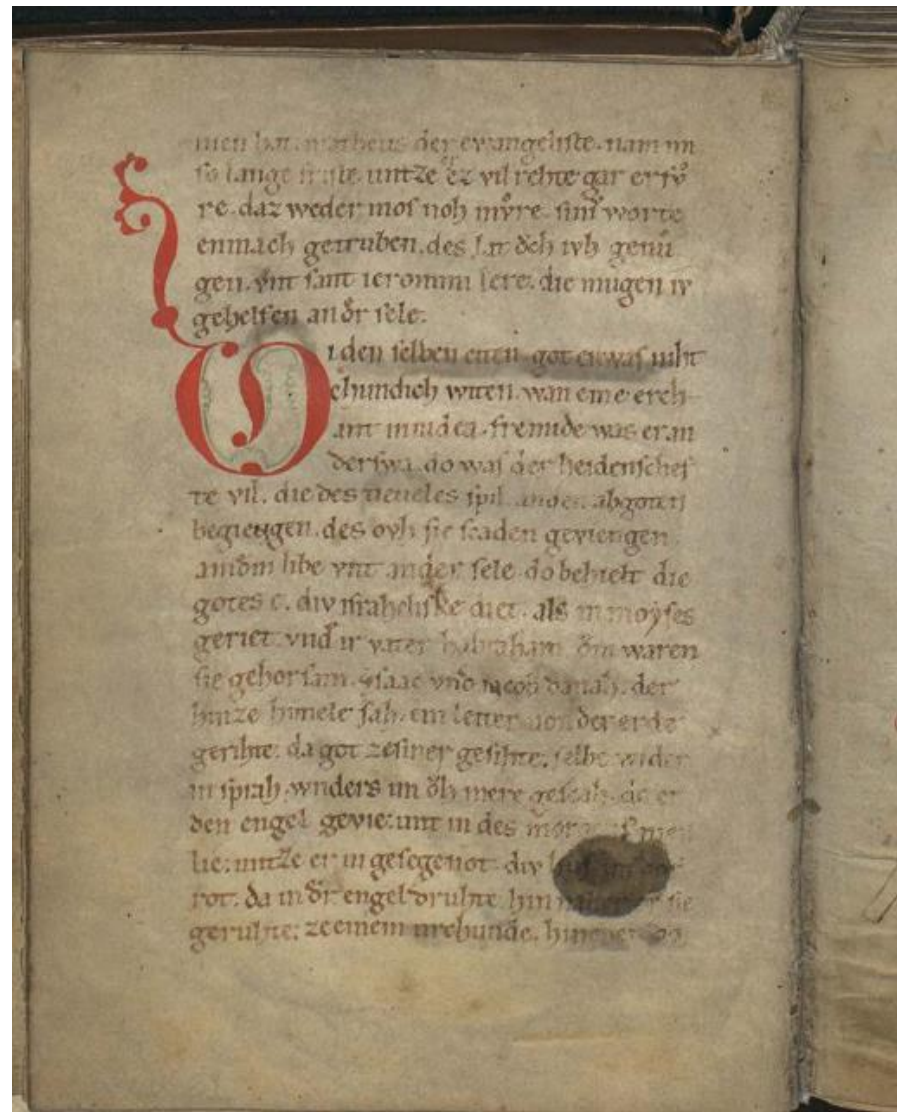 men hat. matheus der ewangeliste. nam im
so lange friste. untze ez vil rehte gar erfv̊
re. daz weder mos noh mv̊re. sini worte
enmach getruben. des lat ǒch ivh genů
gen. vnt sant ieronimi lere. die mugen iv
gehelfen an dˀr sele.
I den selben citen. got enwas niht
chundich witen. wan eine erch
ant in iudea. fremide was er an
derswa. do was der heidenschef
te vil. die des tieueles spil abgoten
begiengen. des ovh sie scaden geviengen
an dˀm libe vnt an der sele do behielt die
gotes e. div israheliske diet. als in moyses
geriet. vnd ir vater habraham dˀm waren
sie gehorsam. ysaac vnd iacob danah. der
hinze himele sah. ein leiter von der erde
gerihte. da got ze siner gesihte. selbe wider
in sprah. wnders im ǒh mere gescah. da er
den engel gevie. unt in des
lie. untze er in gesegenot. div
rot. da in dˀr engel druhte. hin sie
geruhte. ze einem urchunde.